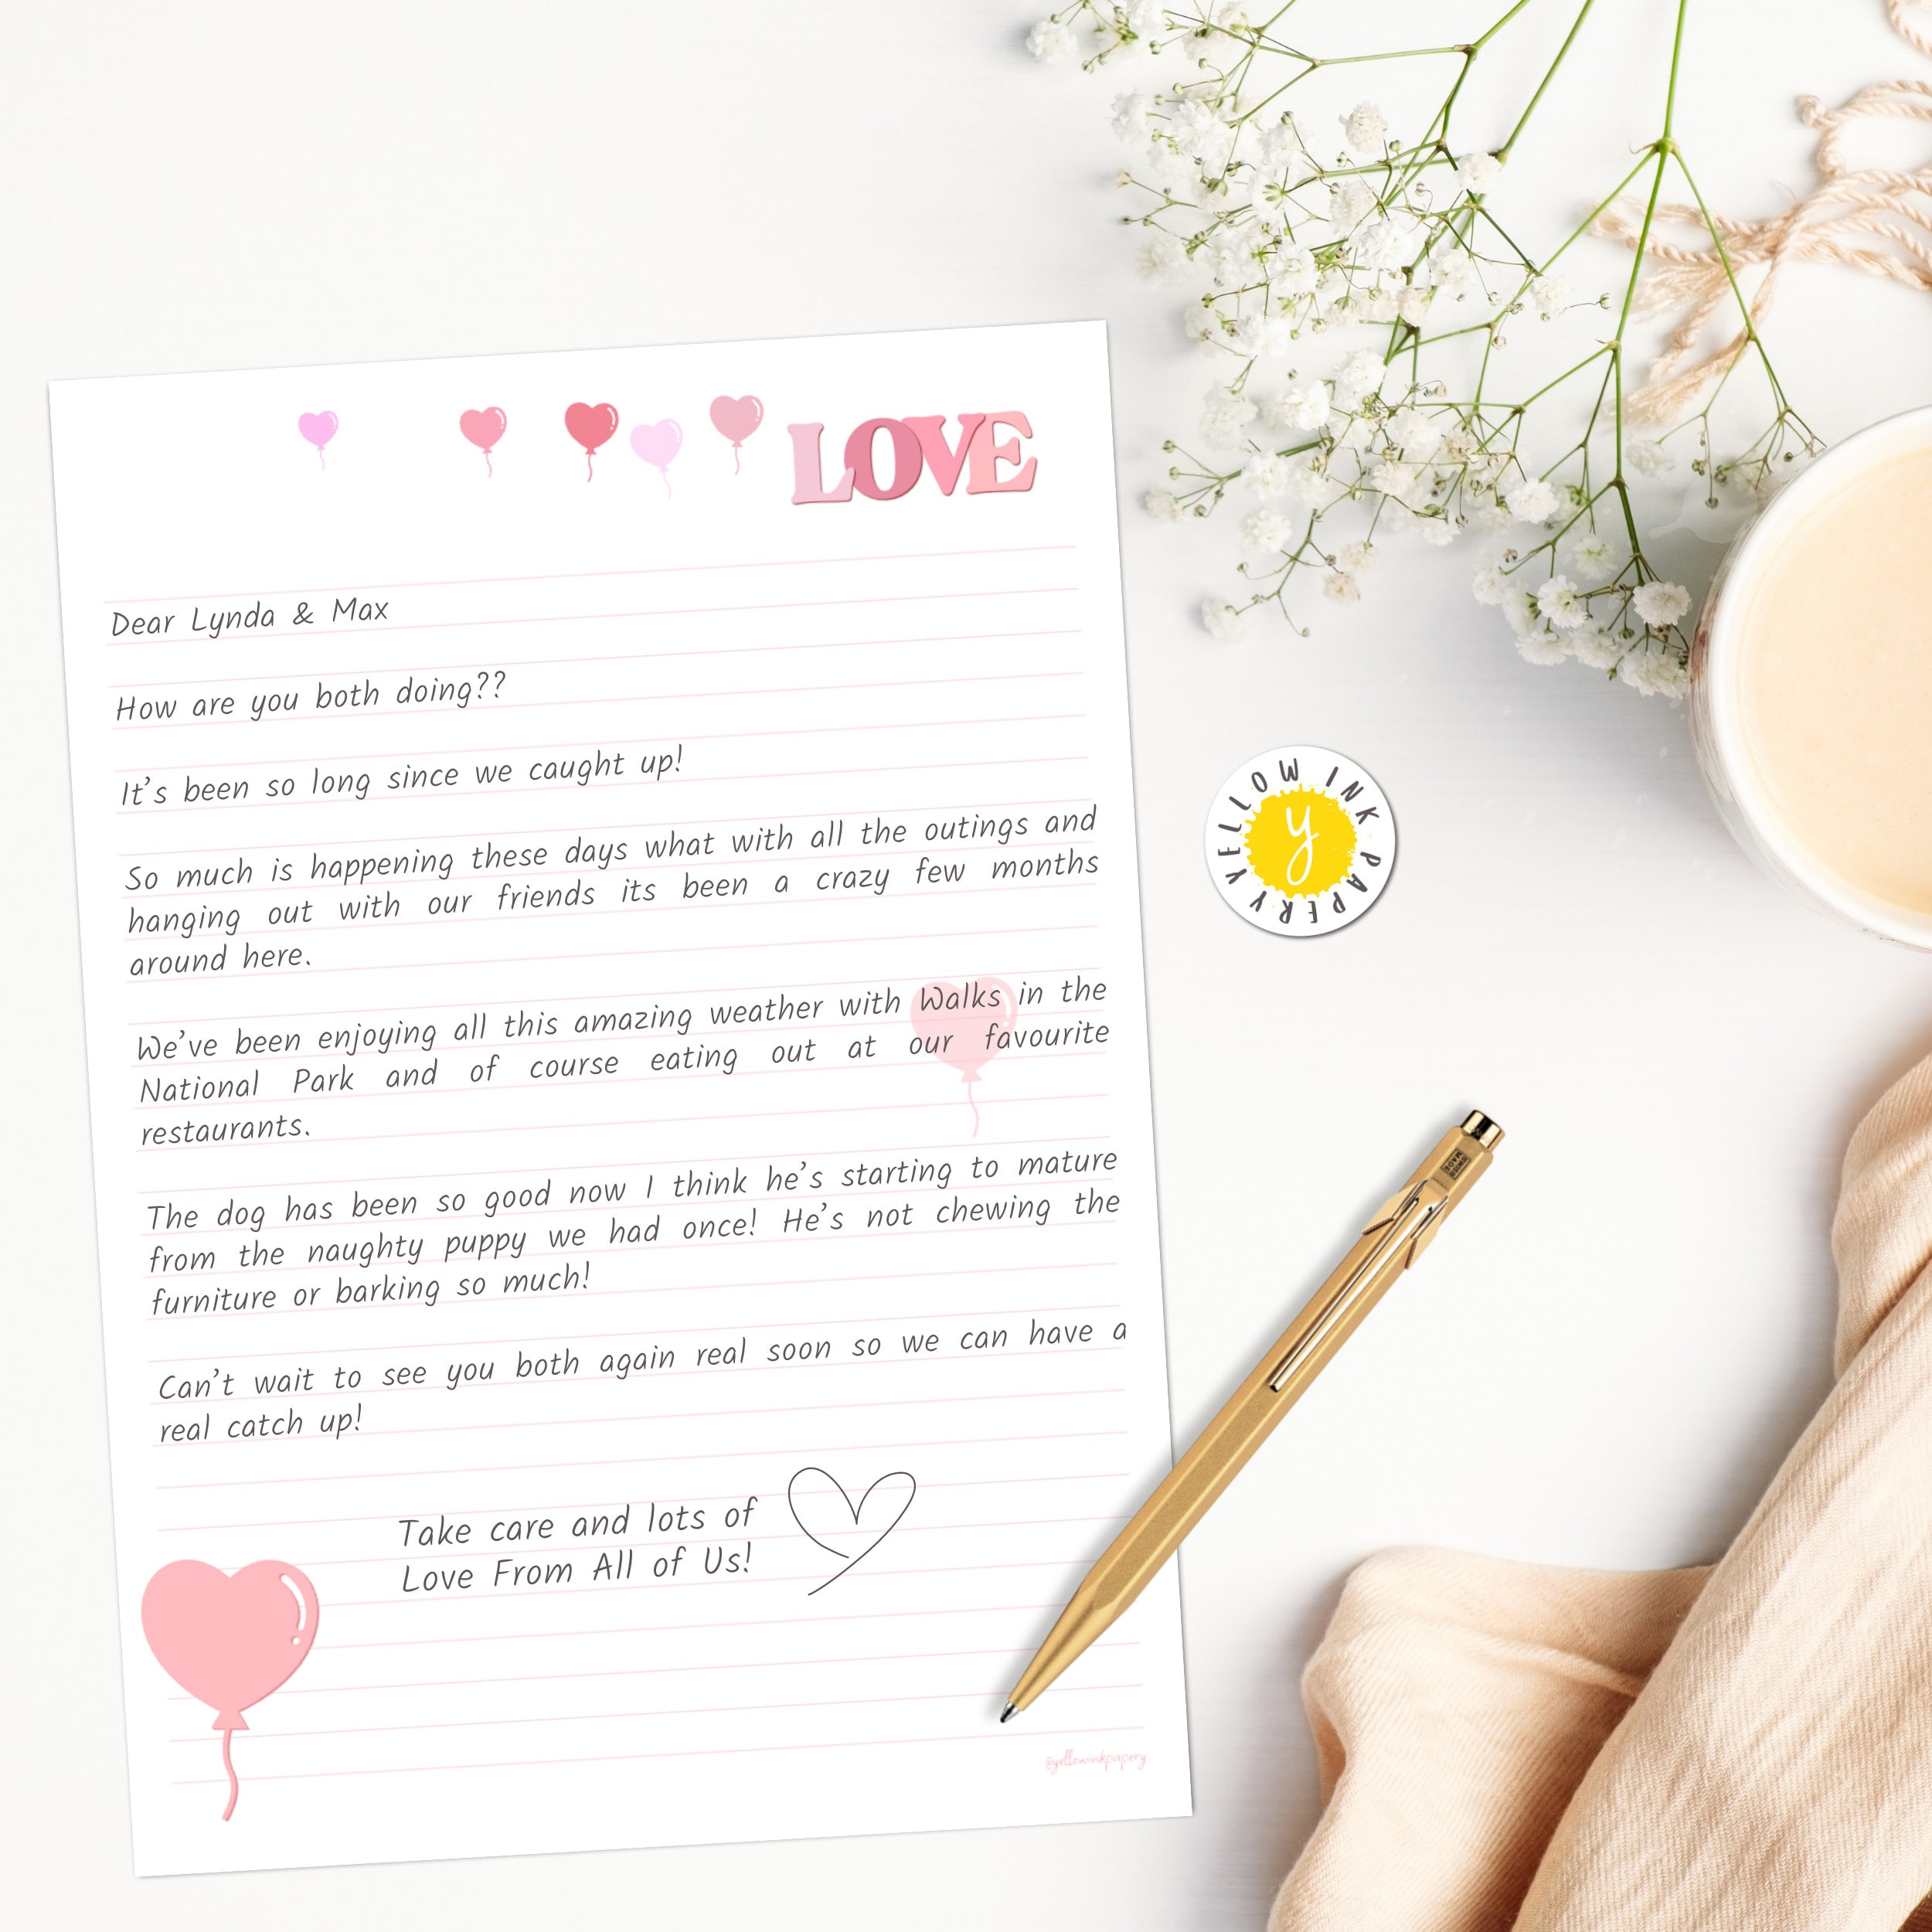 LOVE
Dear Lynda & Max
How are you both doing??
It's been so long since we caught up!
So much is happening these days what with all the outings and
hanging out with our friends its been a crazy few months
around here.
We've been enjoying all this amazing weather with Walks in the
National Park and of course eating out at our favourite
restaurants.
The dog has been so good now I think he's starting to mature
from the naughty puppy we had once! He's not chewing the
furniture or barking so much!
Can't wait to see you both again real soon so we can have a
real catch up!
Take care and lots of
Love From All of Us!
@yellowinkpapery
YELLOW INK PAPERY
y
SWISS
MADE